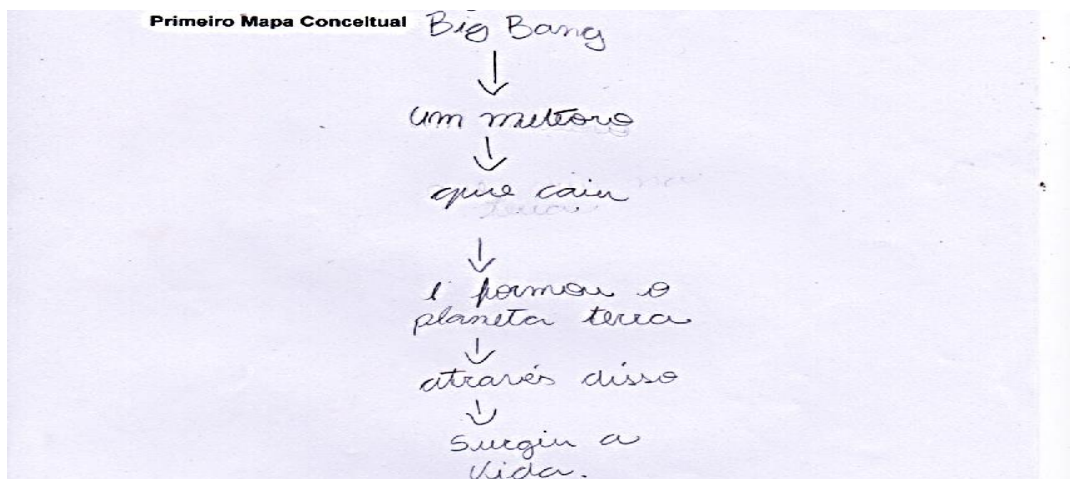 Primeiro Mapa Conceitual
Big Bang
um meteoro
que caiu
e formou o
planeta terra
através disso
Surgiu a
Vida.